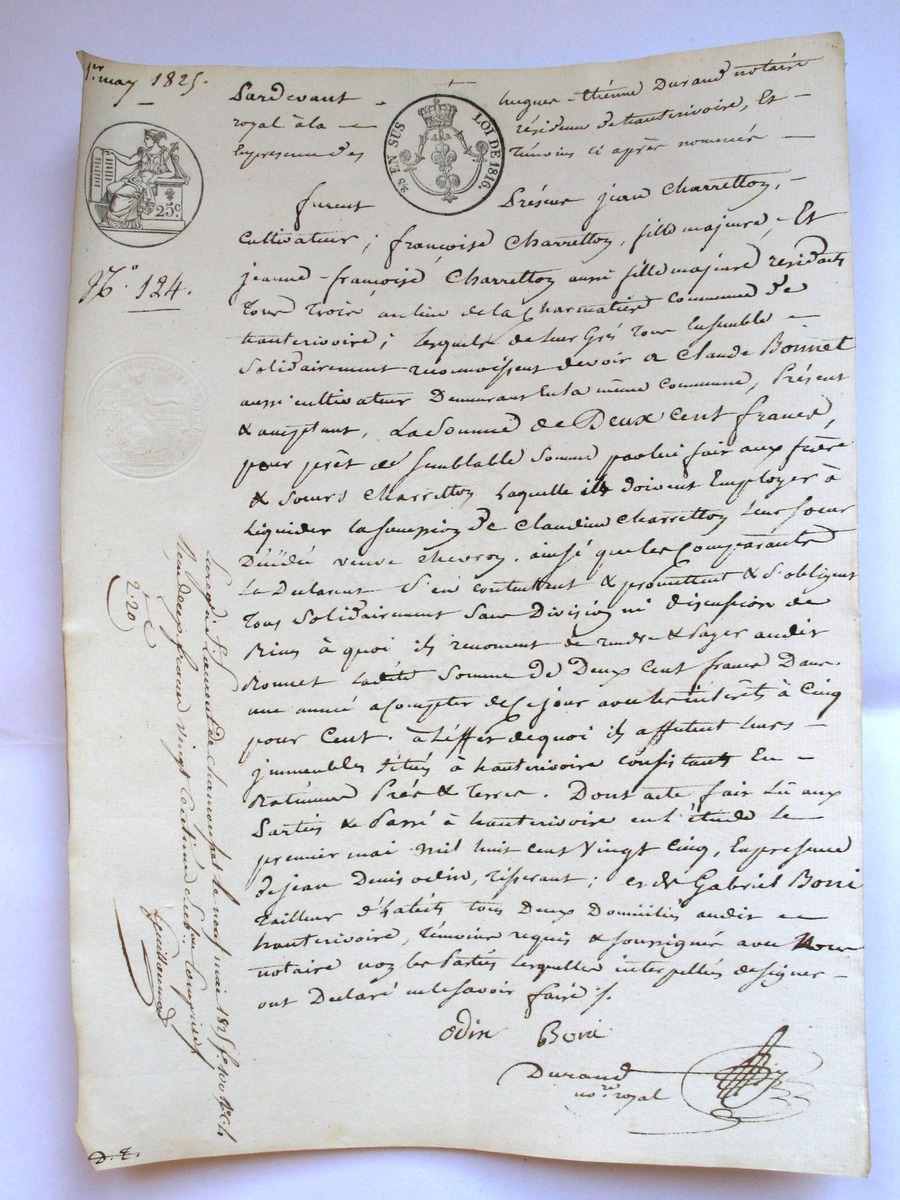 1er may 1825.
Pardevant hugues-étienne Durand notaire
royal à la résidence de hauterivoire, Et
En presence des Témoins ci après nommés
25 EN SUS LOI DE 1816.
25c.
furent Présens jean Charretton,
Cultivateur; françoise Charretton, fille majeure, Et
N° 124.
jeanne-françoise Charretton aussi fille majeure residants
Tous Trois au lieu de la Charmatière Commune de
hauterivoire; lesquels de leur Gré Tous Ensemble
Solidairement reconnoissent devoir a Claude Bonnet
aussi cultivateur Demeurant en la même Commune, Présent
& acceptant, La Somme de Deux Cent francs
pour prêt de semblable Somme par lui fait aux frère
& Soeurs Charretton laquelle ils doivent Employer à
Liquider la de Claudine Charretton leur Soeur
Décédée veuve ainsi que les Comparants
Le Déclarent S'en contentent & promettent & S'obligent
Tous Solidairement Sans Division ni discussion de
Biens à quoi ils renoncent de rendre & Payer audit
Bonnet ladite Somme de Deux Cent francs Dans
une année a Compter de Ce jour avec les intérêts à Cinq
pour Cent. à L'effet de quoi ils affectent leurs
jmmeubles situés à hauterivoire consistants En
Batiments Prés & Terres. Dont acte fait Lu aux
Parties & Passé à hauterivoire en l'étude Le
premier mai Mil huit Cent Vingt Cinq, En presence
de jean Denis odin, Tisserant; et de Gabriel Boni
Tailleur d'habits tous Deux Domiciliés audit
hauterivoire, Témoins requis & soussignés avec Nous
notaire non les Parties lesquelles interpellées de signer
ont Déclaré ne le savoir faire ./.
odin Boni
Durand
nore royal
Enregistré à St Laurent de chamousset le neuf mai 1825 fo 100
Reçu deux francs vingt Centimes Subon Compris
2-20
D. E.